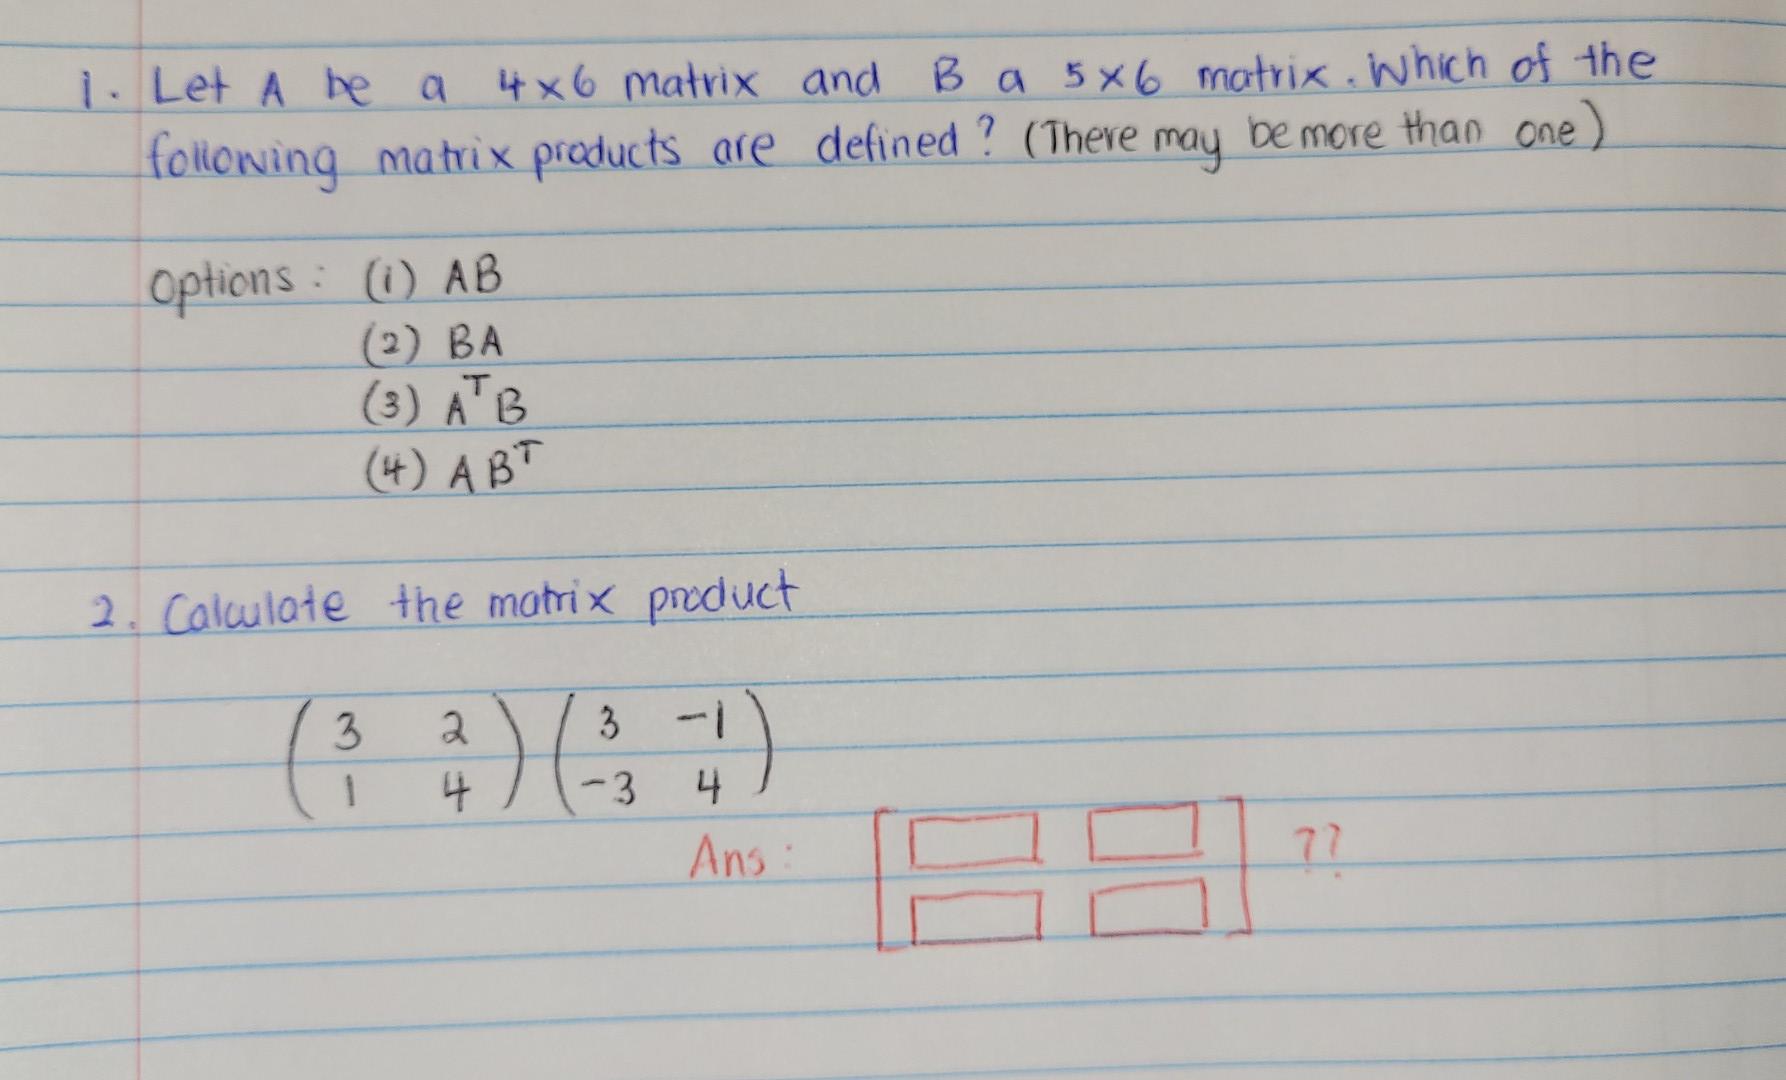 1. Let A be a 4×6 matrix and B a 5×6 matrix. Which of the
following matrix products are defined? (There may be more than one)
Options: (1) AB
(2) BA
(3) AᵀB
(4) ABᵀ
2. Calculate the matrix product
(3 2) (3 -1)
(1 4) (-3 4)
Ans: [ ] ??